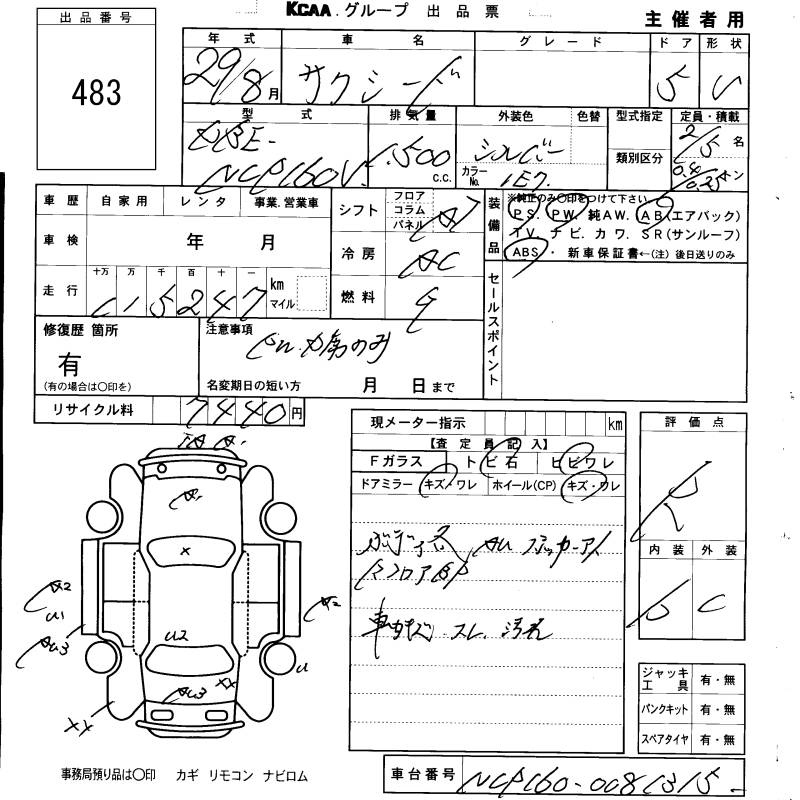 KCAA グループ 出品票
主催者用
出品番号
483
年式 車名 グレード ドア 形状
29/8月 サクシード 5 V
型式 排気量 外装色 色替 型式指定 定員・積載
DBE-
NCP160V 1,500 c.c. シルバー カラーNo. 1E7 類別区分 2/5名
車歴 自家用 レンタ 事業.営業車 シフト フロア コラム パネル AT
装備品 ※純正のみ〇印をつけて下さい
P.S. P.W. 純A.W. A.B(エアバック)
T.V. ナビ. カワ. S R(サンルーフ)
ABS ・ 新車保証書←(注)後日送りのみ
車検 年 月 冷房 AC
走行 十万 万 千 百 十 一 km マイル 燃料 G
115247
セールスポイント
修復歴 箇所
有
(有の場合は〇印を)
注意事項
名変期日の短い方 月 日まで
リサイクル料 7440円
現メーター指示 km
【査定員記入】
Fガラス トビ石 ヒビワレ
ドアミラー キズ・ワレ ホイール(CP) キズ・ワレ
評価点
R
内装 外装
D C
A1
×
A2
U1
A2
U2
U
XX
XX
ジャッキ工具 有・無
パンクキット 有・無
スペアタイヤ 有・無
事務局預り品は〇印 カギ リモコン ナビロム
車台番号 NCP160-0081315